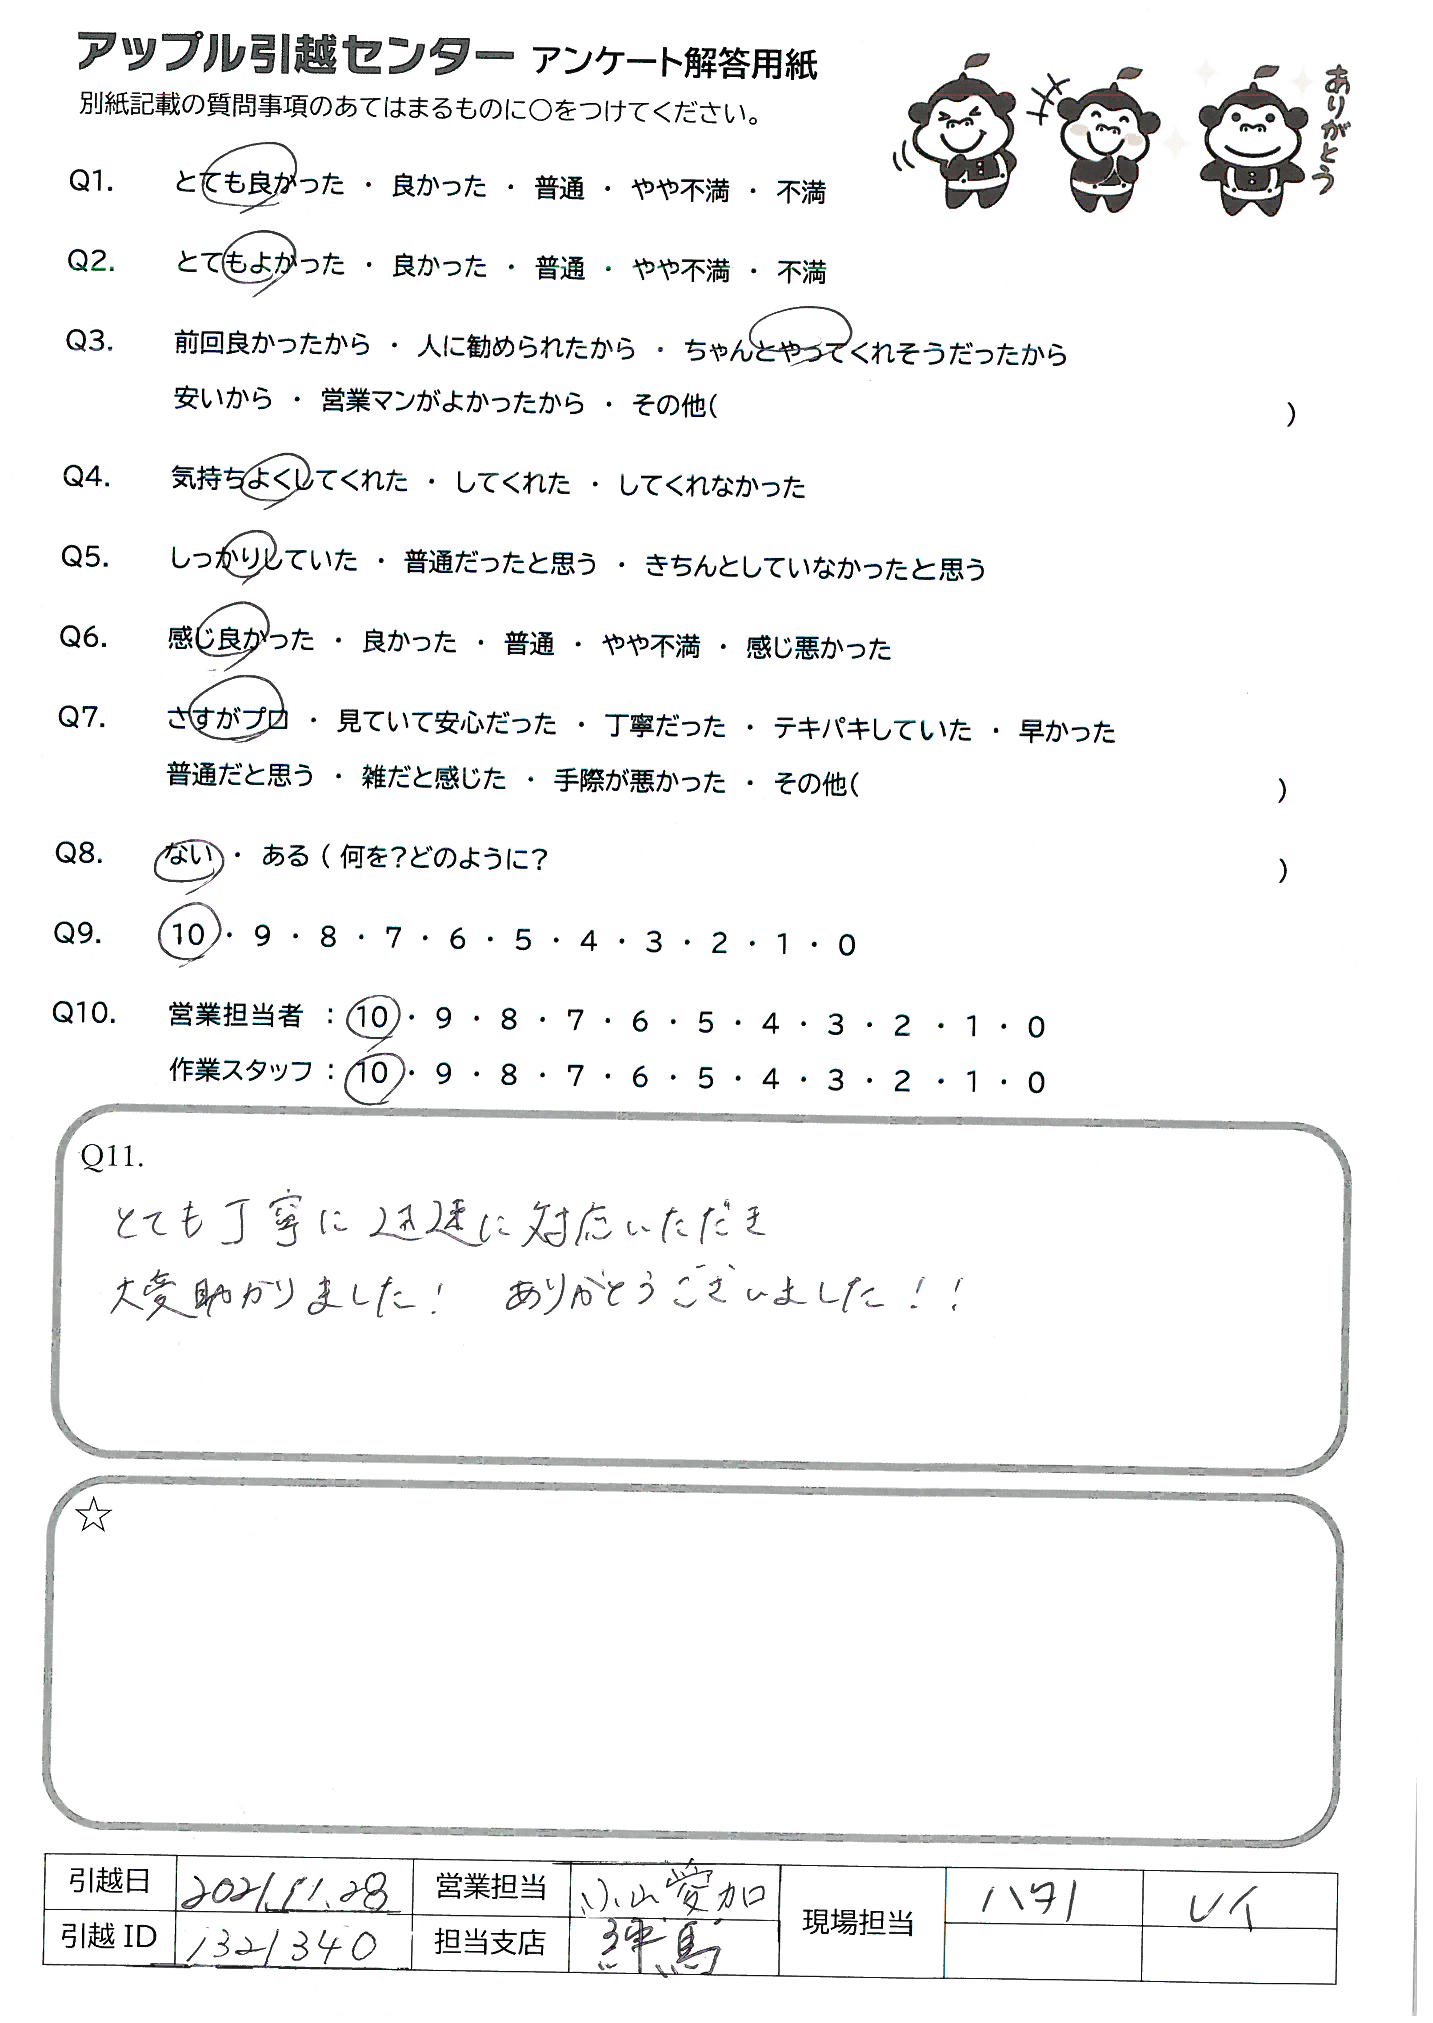 アップル引越センター アンケート解答用紙
別紙記載の質問事項のあてはまるものに○をつけてください。
ありがとう
Q1. とても良かった ・ 良かった ・ 普通 ・ やや不満 ・ 不満
Q2. とてもよかった ・ 良かった ・ 普通 ・ やや不満 ・ 不満
Q3. 前回良かったから ・ 人に勧められたから ・ ちゃんとやってくれそうだったから
安いから ・ 営業マンがよかったから ・ その他( )
Q4. 気持ちよくしてくれた ・ してくれた ・ してくれなかった
Q5. しっかりしていた ・ 普通だったと思う ・ きちんとしていなかったと思う
Q6. 感じ良かった ・ 良かった ・ 普通 ・ やや不満 ・ 感じ悪かった
Q7. さすがプロ ・ 見ていて安心だった ・ 丁寧だった ・ テキパキしていた ・ 早かった
普通だと思う ・ 雑だと感じた ・ 手際が悪かった ・ その他( )
Q8. ない ・ ある ( 何を?どのように? )
Q9. 10 ・ 9 ・ 8 ・ 7 ・ 6 ・ 5 ・ 4 ・ 3 ・ 2 ・ 1 ・ 0
Q10. 営業担当者 : 10 ・ 9 ・ 8 ・ 7 ・ 6 ・ 5 ・ 4 ・ 3 ・ 2 ・ 1 ・ 0
作業スタッフ : 10 ・ 9 ・ 8 ・ 7 ・ 6 ・ 5 ・ 4 ・ 3 ・ 2 ・ 1 ・ 0
Q11.
とても丁寧に迅速に対応いただき
大変助かりました! ありがとうございました!!
☆
引越日 2021.11.28 営業担当 小山愛加 現場担当 ハタノ レイ
引越 ID 1321340 担当支店 練馬